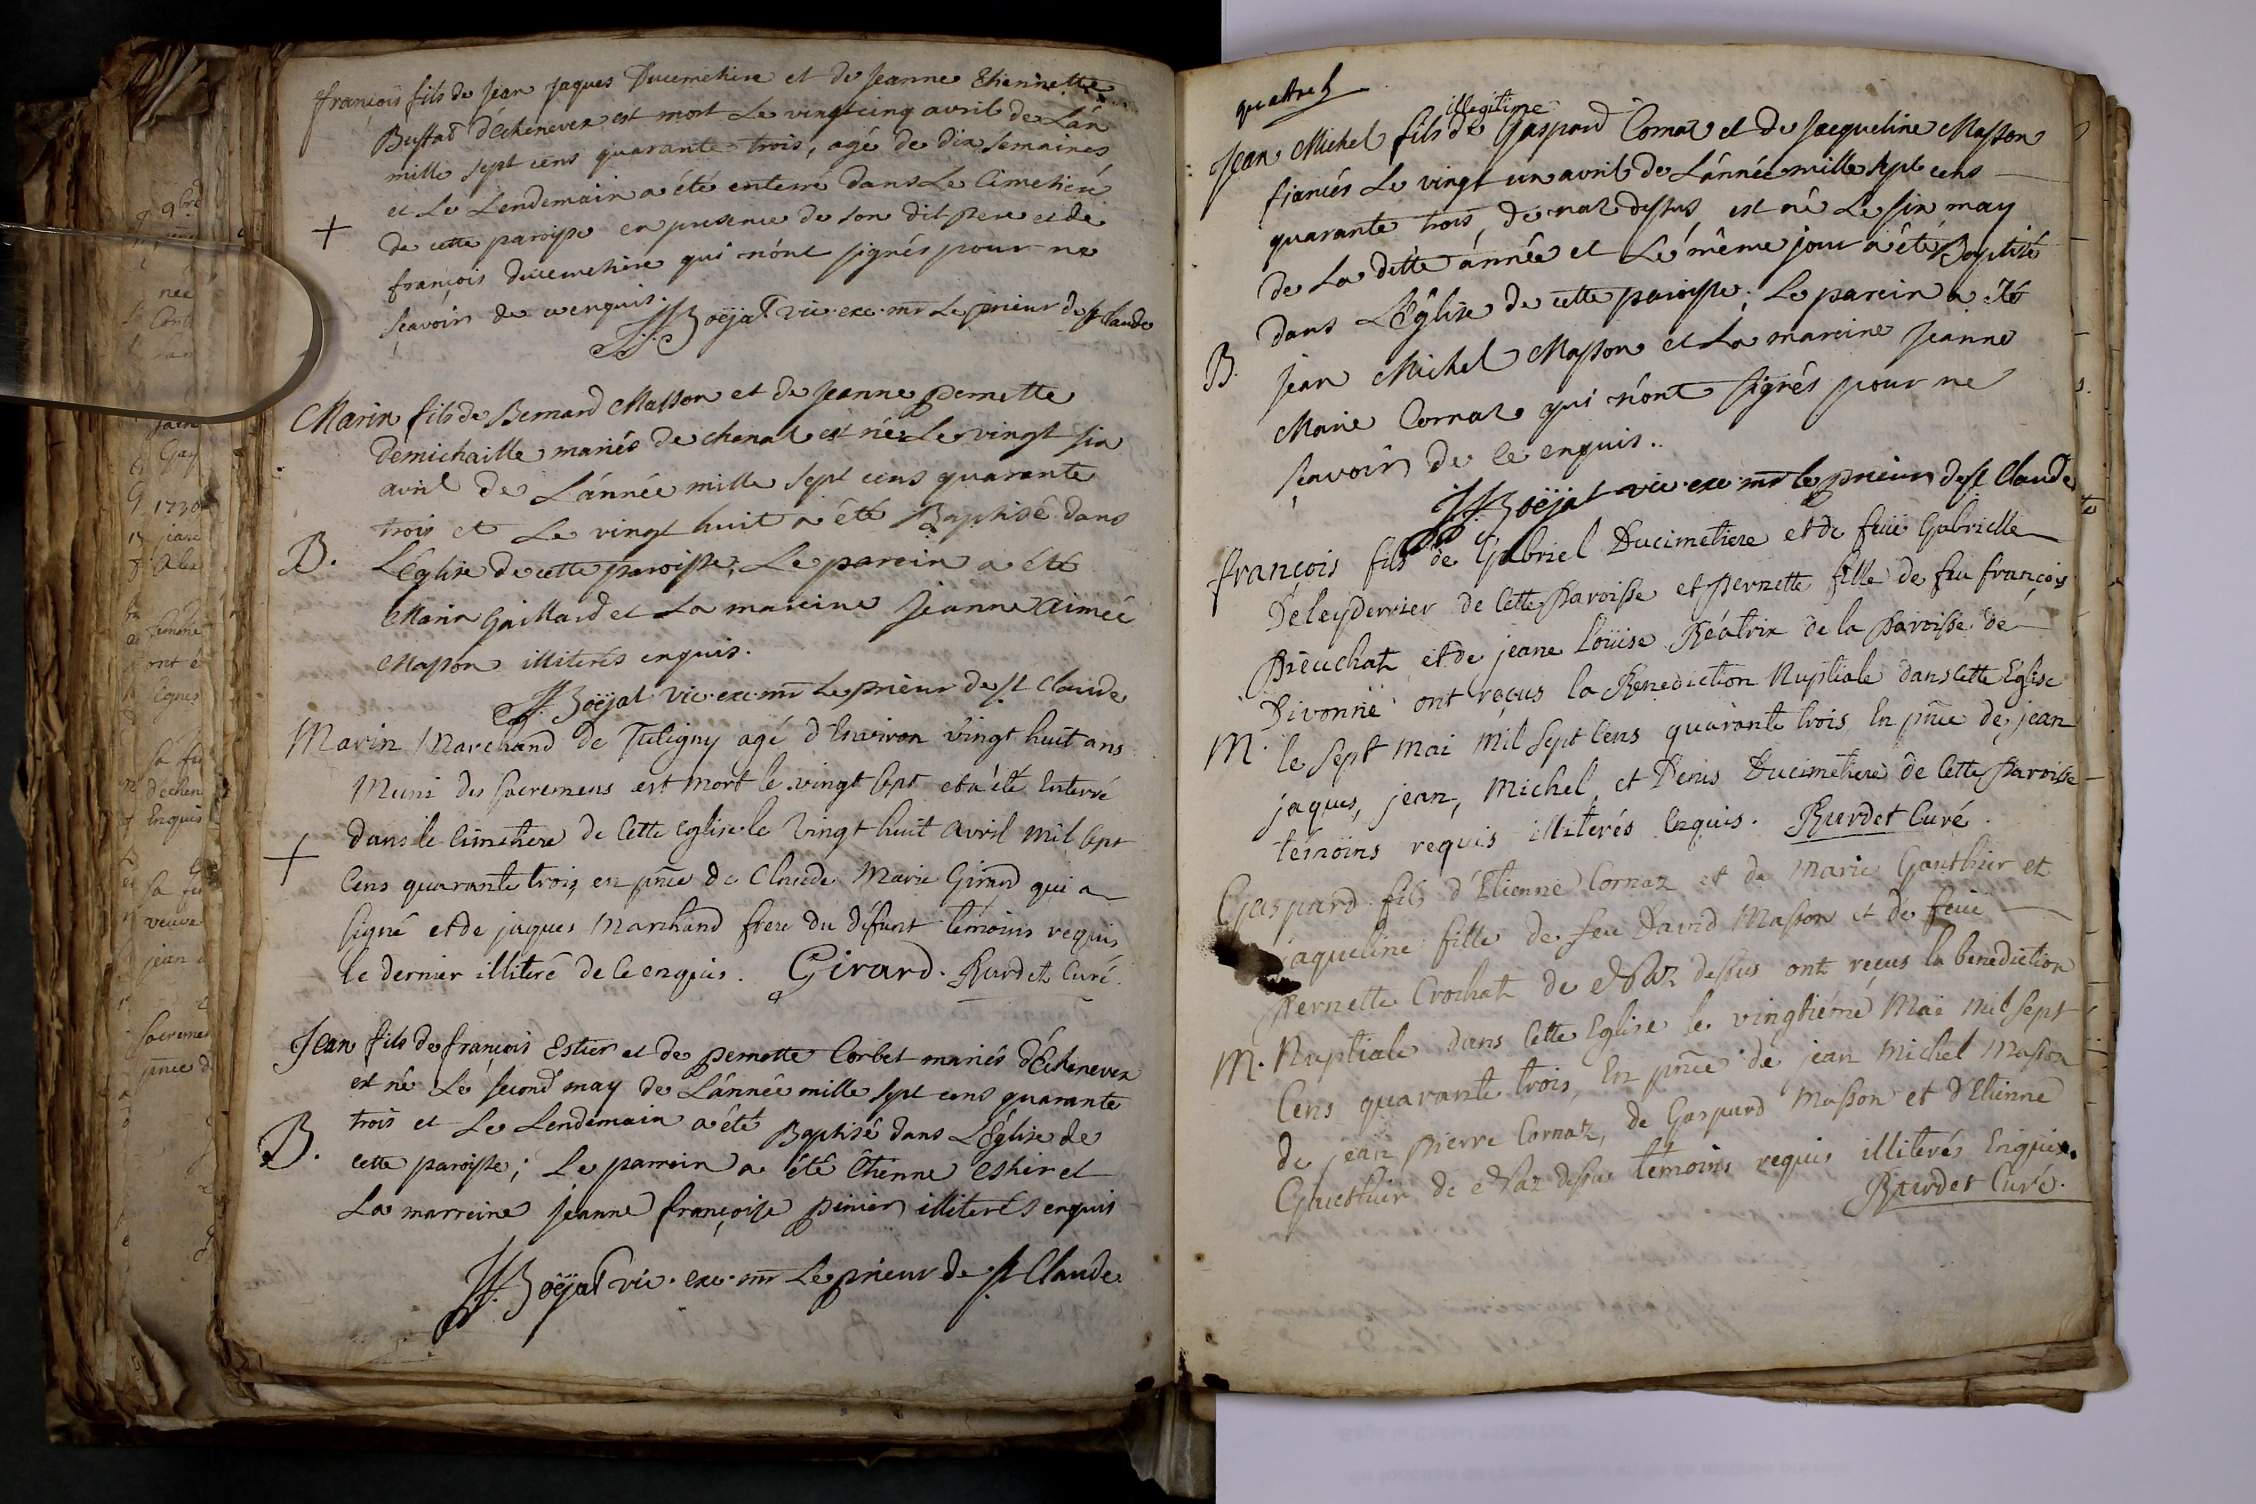 françois fils de Jean Jaques Ducimetiere et de Jeanne Etiennette
Buffad d'Echenevex est mort Le vingt cinq avril de L'an
mille sept cens quarante trois, agé de dix semaines
et Le Lendemain a été enterré dans Le Cimetieré
de cette paroisse en presence de son dit pere et de
+
françois ducimetiere qui n'ont signés pour ne
sçavoir de ce enquis.
Boëjat vic. exc. mr Le prieur de st Claude
Marin fils de Bernard Masson et de Jeanne pernette
Demichaille mariés de chenaz est né Le vingt six
avril de L'année mille sept cens quarante
trois et Le vingt huit a été Baptisé dans
B.
L'Eglise de cette paroisse, Le parein a été
Marin Gaillard et La mareine Jeanne Aimeé
Masson illiterés enquis.
Boëjat vic. exc. mr Le prieur de st Claude
Marin Marchand de Tutigny agé d'Environ vingt huit ans
Muni des sacremens est mort le vingt sept et a été Enterré
dans le Cimetiere de Cette eglise le vingt huit avril mil sept
+
Cens quarante trois, en pnce de Claude Marie Girard qui a
signé et de jaques Marchand frere du défunt témoins requis
le dernier illiteré de ce enquis. Girard. Burdet Curé.
Jean fils de françois Estier et de pernette Corbet mariés d'Echenevex
est né Le second may de L'année mille sept cens quarante
trois et Le Lendemain a été Baptisé dans L'Eglise de
B.
cette paroisse; Le parrein a été Etienne Estier et
La marreine Jeanne françoise pinier illiterés enquis
Boëjat vic. exc. mr Le prieur de st Claude
quattre
illegitime
Jean Michel fils de Gaspard Cornaz et de Jacqueline Masson
fiancés Le vingt un avril de L'année mille sept cens
quarante trois, de naz dessus, est né Le six may
de La ditte année et Le même jour a été Baptisé
dans L'Eglise de cette paroisse; Le parein a été
B.
Jean Michel Masson et La mareine Jeanne
Marie Cornaz qui n'ont signés pour ne
sçavoir de ce enquis..
Boëjat vic. exc. mr le prieur de st Claude
françois fils de Gabriel Ducimetiere et de feüe Gabrielle
Deleyderrier de Cette Paroisse et Pernette fille de feu françois
Prieuchat et de jeane Loüise Béatrix de la Paroisse de
Divonne ont reçus la Benediction Nuptiale dans Cette Eglise
M.
le sept Mai Mil Sept Cens quarante trois, En pnce de jean
jaques, jean, Michel, et Denis Ducimetiere de Cette Paroisse
témoins requis illiterés Enquis. Burdet Curé.
Gaspard fils d'Etienne Cornaz et de Marie Gauthier et
jaqueline fille de feu David Masson et de feüe
Pernette Crochat de Naz dessus ont reçus la benediction
M.
Nuptiale dans Cette Eglise le vingtiéme Mai Mil Sept
Cens quarante trois, En pnce de jean Michel Masson
de jean Pierre Cornaz, de Gaspard Masson et d'Etienne
Gauthier de Naz dessus témoins requis illiterés Enquis.
Burdet Curé.